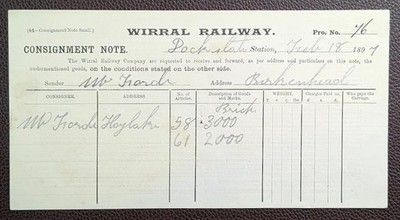 (44—Consignment Note Small.)
WIRRAL RAILWAY.
Pro. No. 76
CONSIGNMENT NOTE.
Station, Feb 18 1897
The Wirral Railway Company are requested to receive and forward, as per address and particulars on this note, the
undermentioned goods, on the conditions stated on the other side.
Sender Mr Address Birkenhead
CONSIGNEE. ADDRESS. No. of Articles. Description of Goods and Marks. WEIGHT. Charges Paid on. Who pays the Carriage.
Brick
Mr Hoylake 58 3000
61 2000